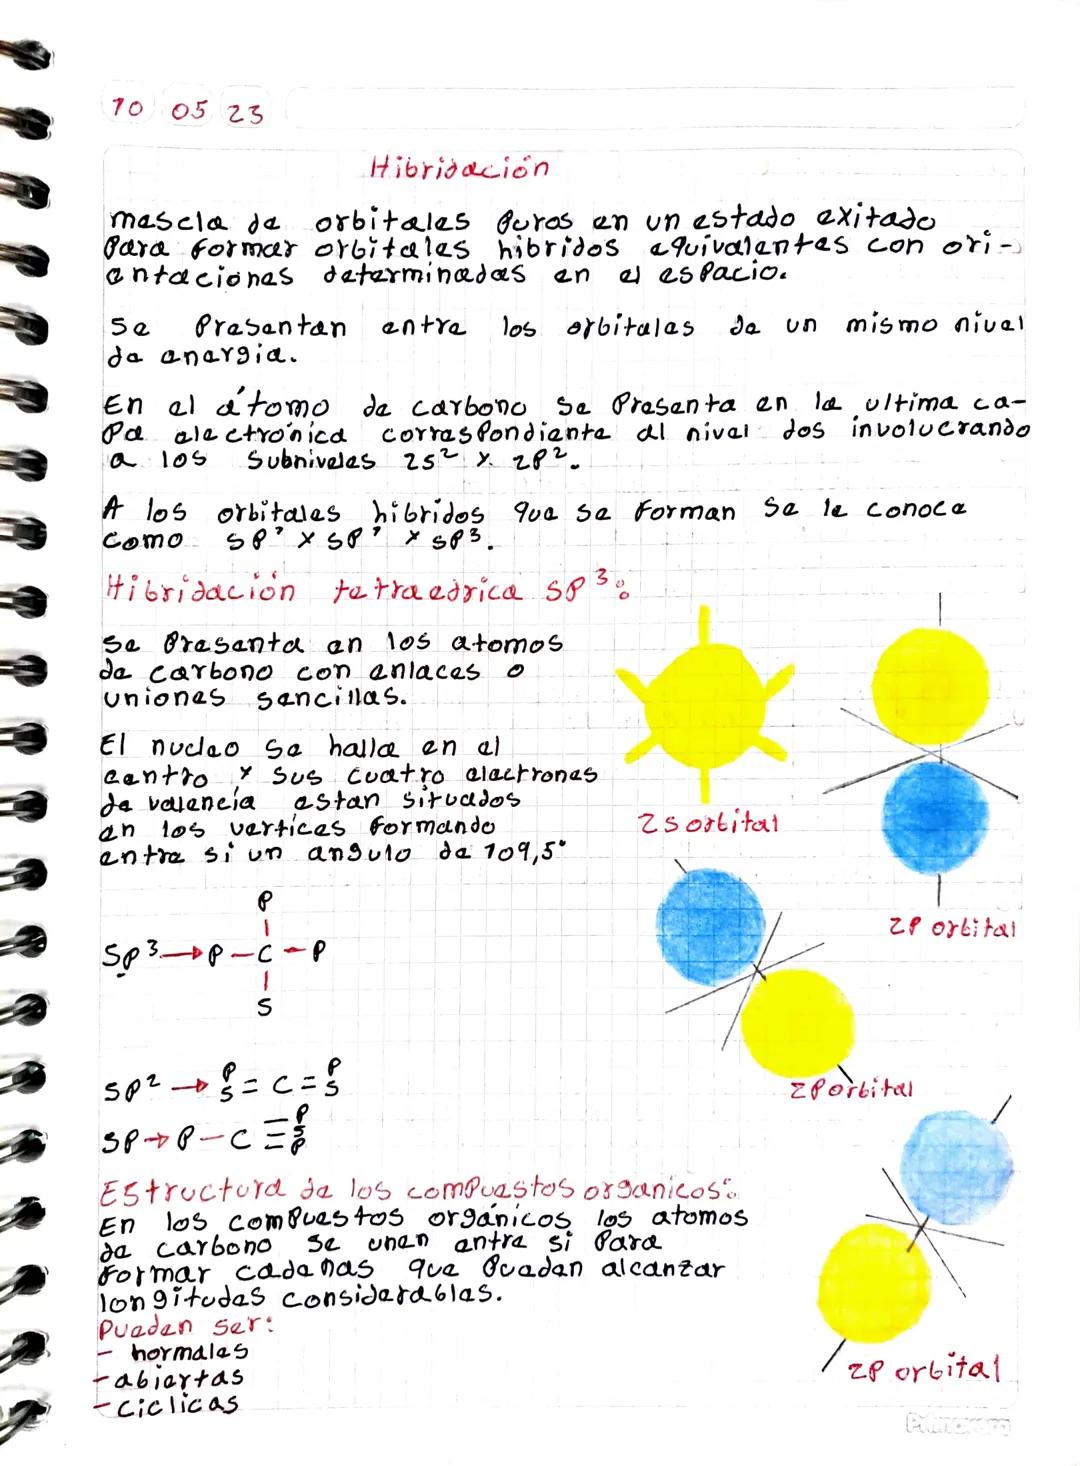 10 05 23
Hibridación
mescla de orbitales puros en un estado exitado
Para formar orbitales hibridos equivalentes con ori-
entaciones determinadas en el espacio.
Se Presentan entre los orbitales de un mismo nivel
de energia.
En el átomo de carbono se Presenta en la ultima ca-
Pa electrónica correspondiente al nivel dos involucrando
a los Subniveles 2s² y 2p².
A los orbitales hibridos que se forman se le conoce
como sp' y sp' y sp³.
Hibridación tetraedrica SP³:
Se Presenta en los atomos
de carbono con enlaces o
uniones sencillas.
El nucleo se halla en el
centro y sus cuatro electrones
de valencia estan situados
en los vertices formando
entre si un angulo de 109,5°
2s orbital
2P orbital
P
SP³→P-C-P
S
SP²→ P S = C = P S
2P orbital
SP→P-C≡ P S P
Estructura de los compuestos organicos:
En los compuestos orgánicos los atomos
de carbono se unen entre si Para
formar cadenas que Puedan alcanzar
longitudes considerables.
Pueden ser:
- normales
- abiertas
- ciclicas
2P orbital
Primavera